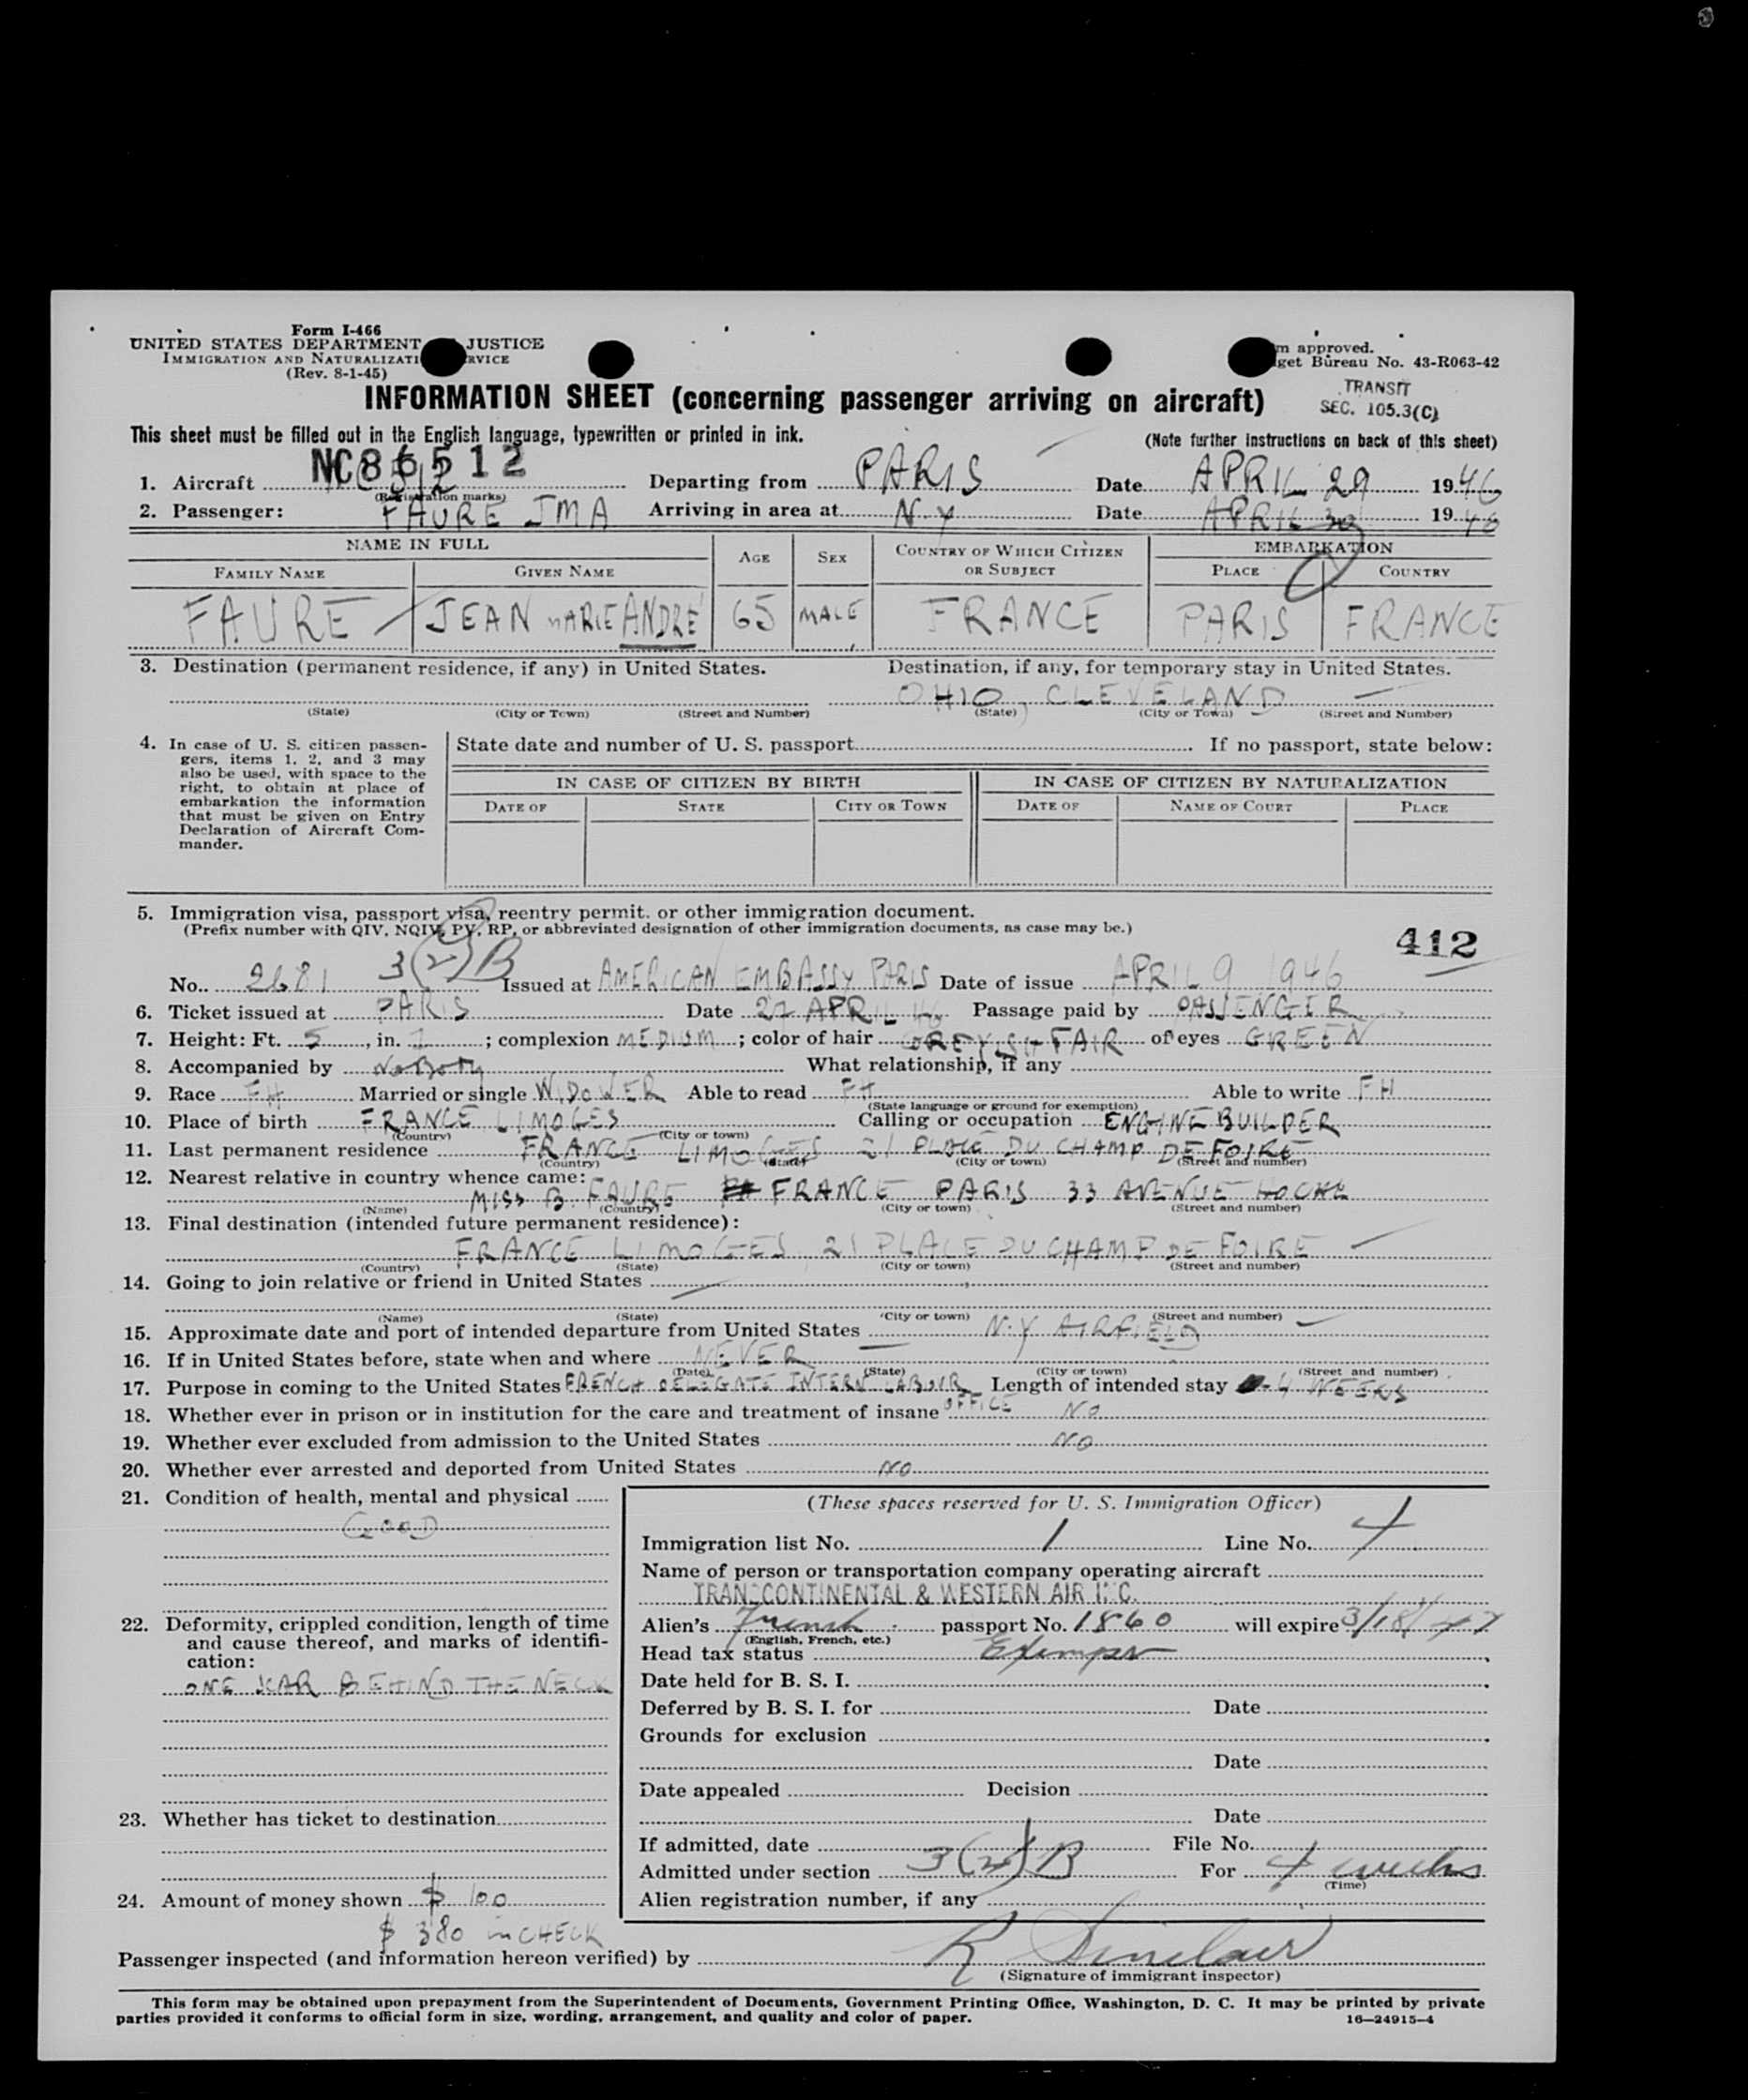 Form I-466
UNITED STATES DEPARTMENT JUSTICE
IMMIGRATION AND NATURALIZATI RVICE
(Rev. 8-1-45)
m approved.
get Bureau No. 43-R063-42
INFORMATION SHEET (concerning passenger arriving on aircraft)
TRANSIT
SEC. 105.3(C)
This sheet must be filled out in the English language, typewritten or printed in ink.
(Note further instructions on back of this sheet)
1. Aircraft NC86512 Departing from PARIS Date APRIL 29 1946
(Registration marks)
2. Passenger: FAURE JMA Arriving in area at N.Y Date APRIL 30 1946
NAME IN FULL AGE SEX COUNTRY OF WHICH CITIZEN OR SUBJECT EMBARKATION
FAMILY NAME GIVEN NAME PLACE COUNTRY
FAURE JEAN MARIE ANDRÉ 65 MALE FRANCE PARIS FRANCE
3. Destination (permanent residence, if any) in United States. Destination, if any, for temporary stay in United States.
OHIO CLEVELAND
(State) (City or Town) (Street and Number) (State) (City or Town) (Street and Number)
4. In case of U. S. citizen passengers, items 1, 2, and 3 may also be used, with space to the right, to obtain at place of embarkation the information that must be given on Entry Declaration of Aircraft Commander.
State date and number of U. S. passport If no passport, state below:
IN CASE OF CITIZEN BY BIRTH IN CASE OF CITIZEN BY NATURALIZATION
DATE OF STATE CITY OR TOWN DATE OF NAME OF COURT PLACE
5. Immigration visa, passport visa, reentry permit, or other immigration document.
(Prefix number with QIV, NQIV, PV, RP, or abbreviated designation of other immigration documents, as case may be.)
412
No. 2681 3(2)B Issued at AMERICAN EMBASSY PARIS Date of issue APRIL 9 1946
6. Ticket issued at PARIS Date 27 APRIL 46 Passage paid by PASSENGER
7. Height: Ft. 5, in. ; complexion MEDIUM; color of hair GREYISH FAIR of eyes GREEN
8. Accompanied by NoBody What relationship, if any
9. Race FH Married or single WIDOWER Able to read FH Able to write FH
(State language or ground for exemption)
10. Place of birth FRANCE LIMOGES Calling or occupation ENGINE BUILDER
(Country) (City or town)
11. Last permanent residence FRANCE LIMOGES 21 PLACE DU CHAMP DE FOIRE
(Country) (State) (City or town) (Street and number)
12. Nearest relative in country whence came:
MISS B. FAURE FRANCE PARIS 33 AVENUE HOCHE
(Name) (Country) (City or town) (Street and number)
13. Final destination (intended future permanent residence):
FRANCE LIMOGES 21 PLACE DU CHAMP DE FOIRE
(Country) (State) (City or town) (Street and number)
14. Going to join relative or friend in United States
(Name) (State) (City or town) (Street and number)
15. Approximate date and port of intended departure from United States N.Y AIRFIELD
16. If in United States before, state when and where NEVER
(Date) (State) (City or town) (Street and number)
17. Purpose in coming to the United States FRENCH DELEGATE INTERN LABOUR OFFICE Length of intended stay 4 WEEKS
18. Whether ever in prison or in institution for the care and treatment of insane NO
19. Whether ever excluded from admission to the United States NO
20. Whether ever arrested and deported from United States NO
21. Condition of health, mental and physical
GOOD
22. Deformity, crippled condition, length of time and cause thereof, and marks of identification:
ONE SCAR BEHIND THE NECK
23. Whether has ticket to destination
24. Amount of money shown $ 100
$ 380 in CHECK
(These spaces reserved for U. S. Immigration Officer)
Immigration list No. 1 Line No. 4
Name of person or transportation company operating aircraft
TRANSCONTINENTAL & WESTERN AIR INC.
Alien's French passport No. 1860 will expire 3/18/47
(English, French, etc.)
Head tax status Exempt
Date held for B. S. I.
Deferred by B. S. I. for Date
Grounds for exclusion
Date
Date appealed Decision
Date
If admitted, date File No.
Admitted under section 3(2)B For 4 weeks
(Time)
Alien registration number, if any
Passenger inspected (and information hereon verified) by R Sinclair
(Signature of immigrant inspector)
This form may be obtained upon prepayment from the Superintendent of Documents, Government Printing Office, Washington, D. C. It may be printed by private
parties provided it conforms to official form in size, wording, arrangement, and quality and color of paper.
16—24915-4